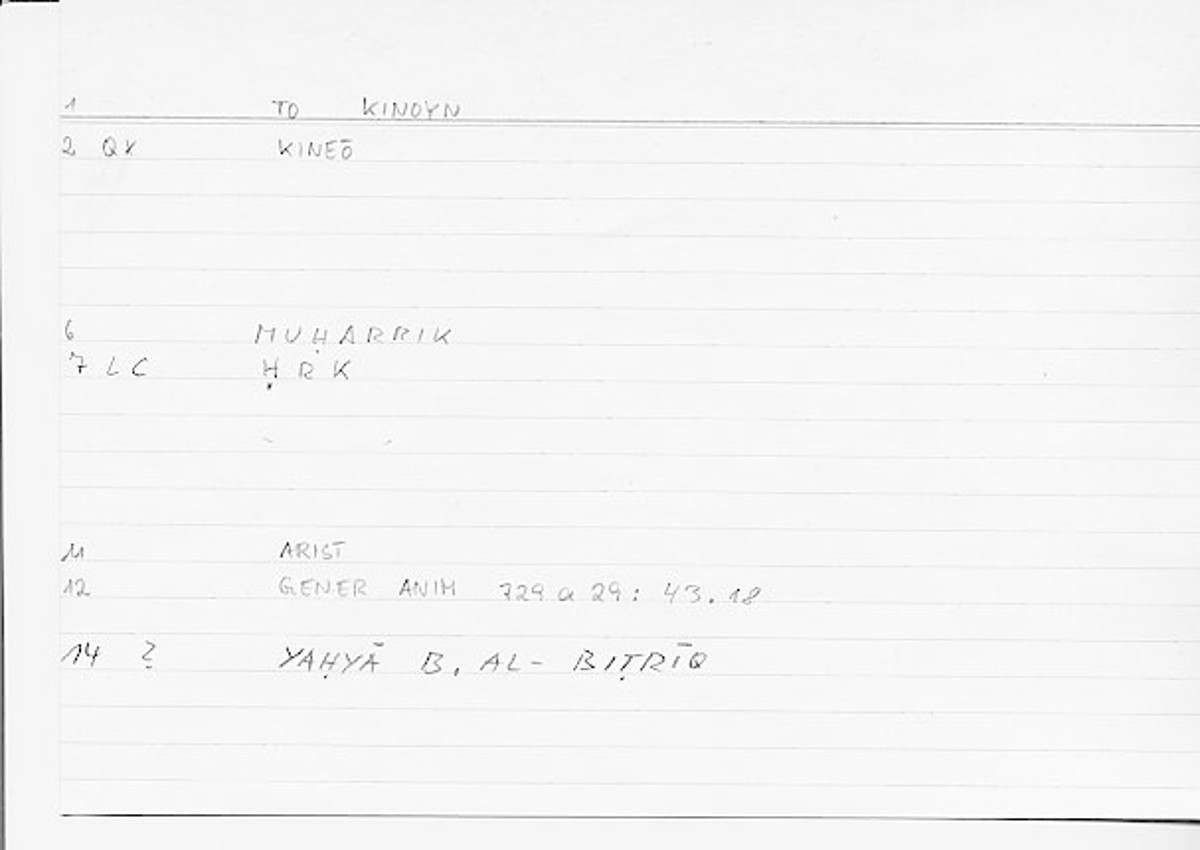 1 TO KINOYN
2 QK KINEŌ
6 MUḤARRIK
7 LC ḤRK
11 ARIST
12 GENER ANIM 729 a 29: 43.18
14 ? YAḤYĀ B. AL-BIṬRĪQ